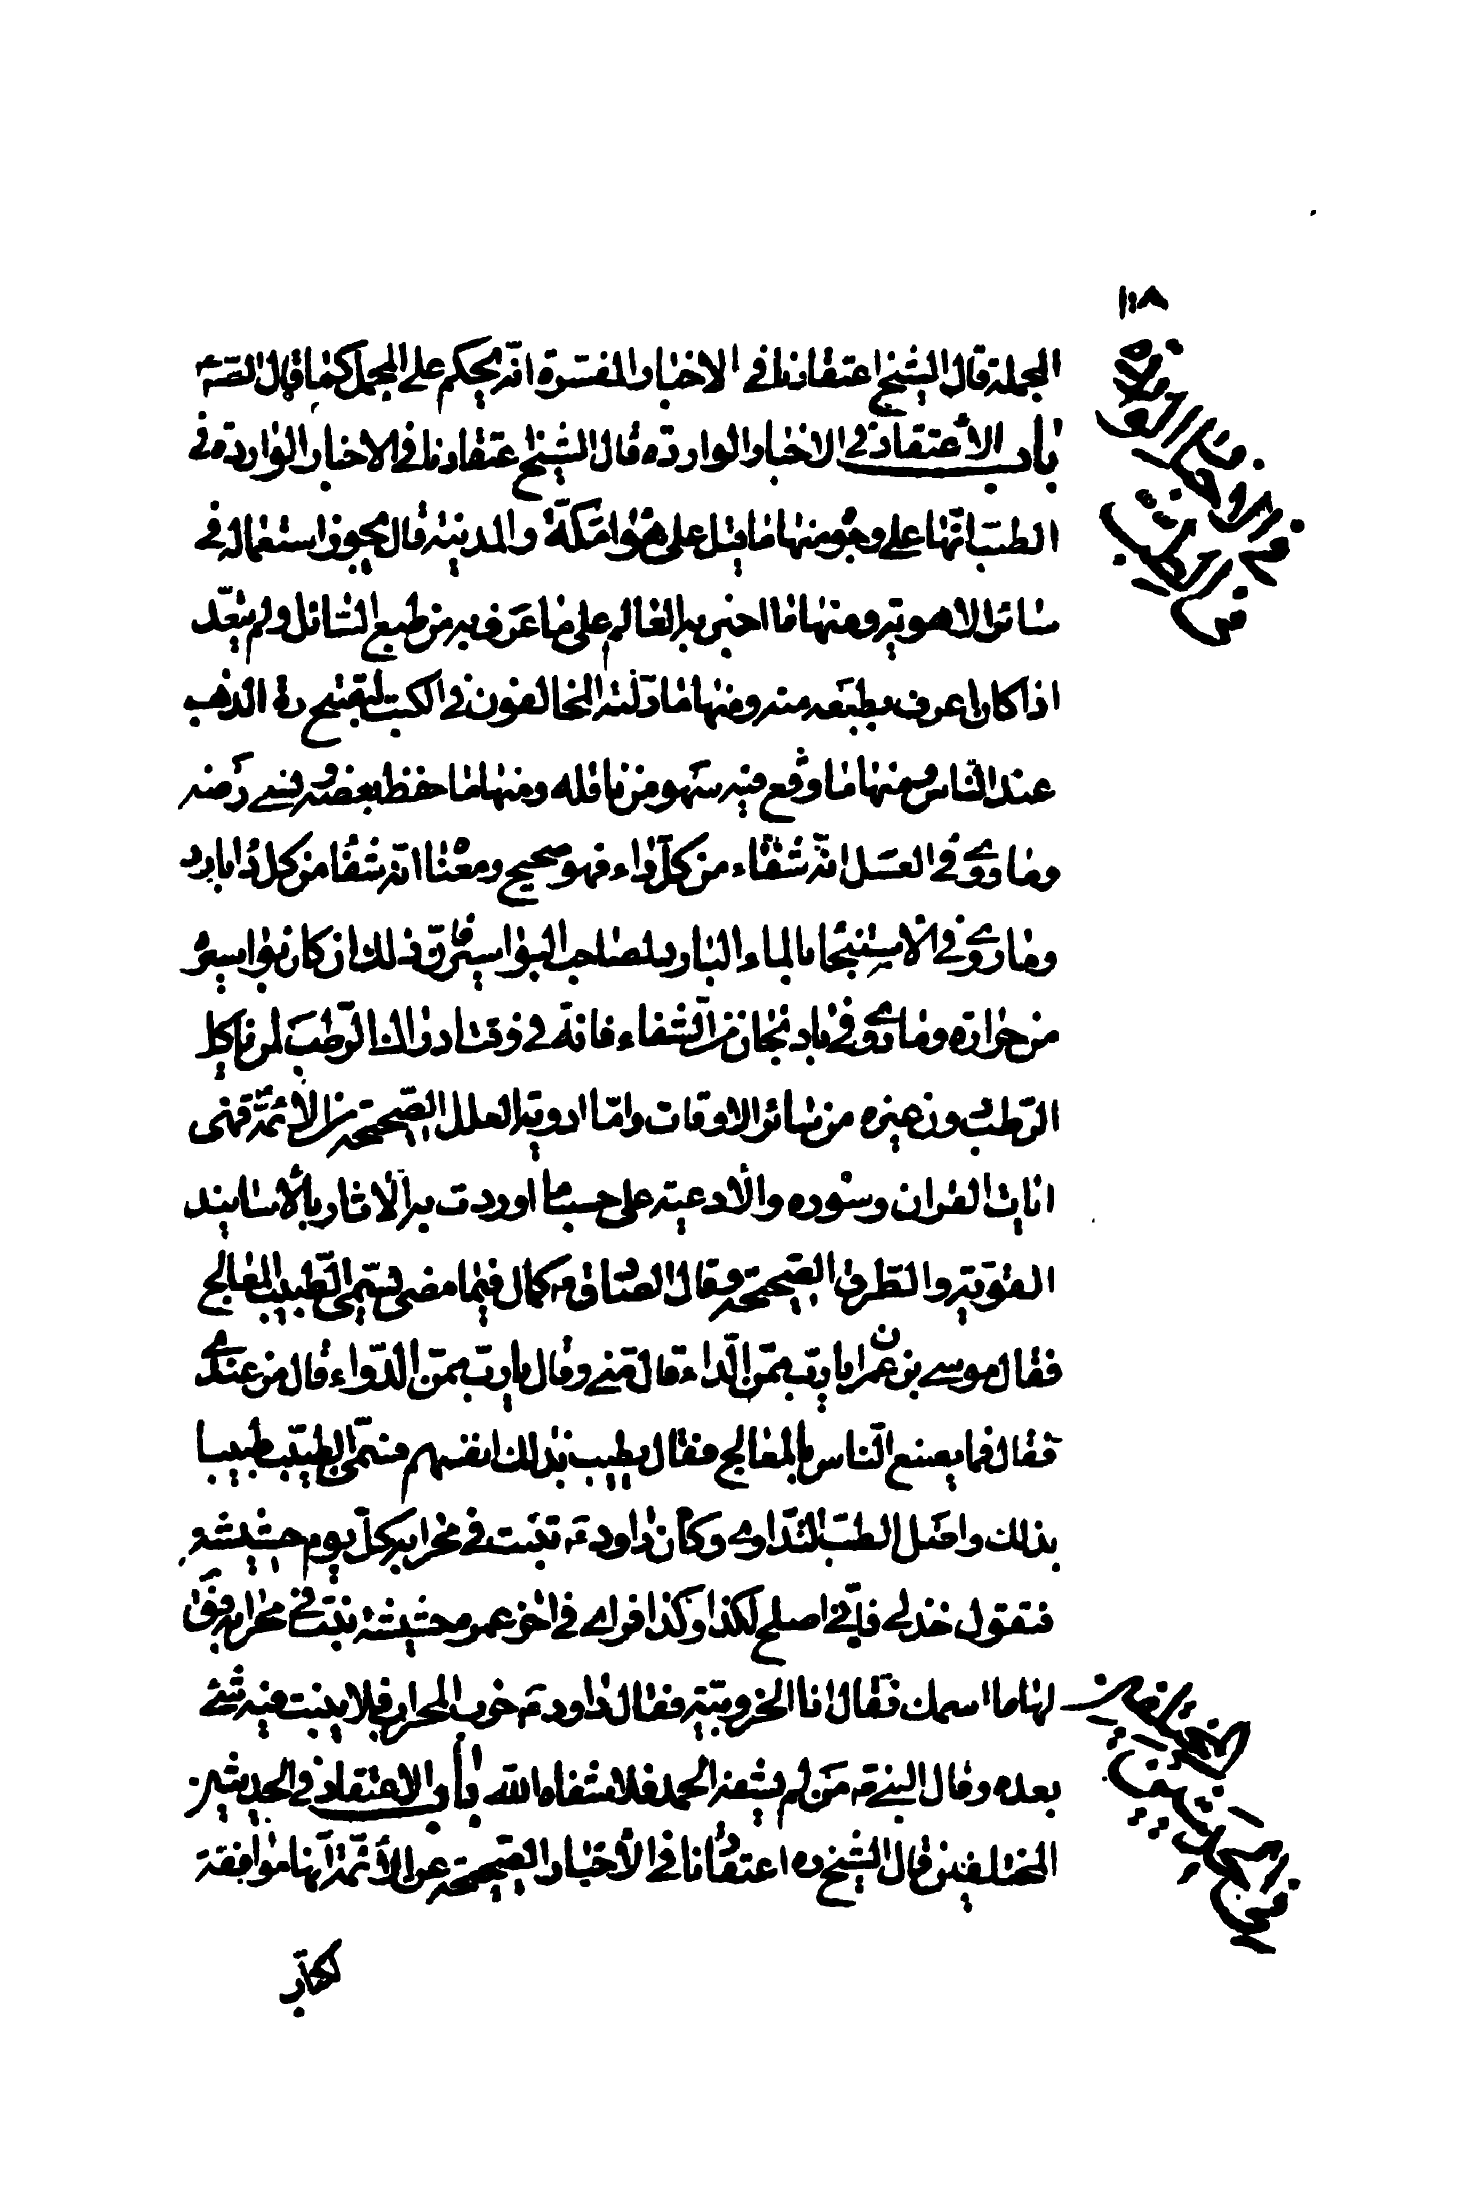 ١٠٨
المجملة قال الشيخ اعتقادنا في الاخبار المفسرة انه يحكم على المجمل كما قال الصه
باب الأعتقاد في الاخبار الواردة قال الشيخ اعتقادنا في الاخبار الواردة في
الطب انها على وجوه منها ما قيل على هواء مكة والمدينة قال يجوز استعماله في
سائر الاهوية ومنها ما اخبر به العالم على ما عرف به من طبع السائل ولم يتعد
اذا كان اعرف بطبعه منه ومنها ما دلسه المخالفون في الكتب ليقبح رة الذهب
عند الناس ومنها ما وقع فيه سهو من ناقله ومنها ما حفظ بعضه ونسي بعضه
وما روي في العسل انه شفاء من كل داء فهو صحيح ومعنا انه شفا من كل دا بارد
وما روي في الاستنجا بالماء البارد لصاحب البواسير فان ذلك ان كان بواسير
من حرارة وما روي في باد نجان من الشفاء فانه في وقت ادراك الرطب لمن ياكل
الرطب ون غيره من سائر الاوقات واما ادوية العلل الصحيحة من الأئمة فهي
ايات القران وسوره والادعية على حسب ما اوردت به الاثار بالأسانيد
القوية والطرق الصحيحة وقال الصادق ع كان فيما مضى تسمى الطبيب المعالج
فقال موسى بن عمران يا رب ممن الداء قال مني وقال يا رب ممن الدواء قال من عندي
فقال فما يصنع الناس بالمعالج فقال يطيب بذلك انفسهم فسمى الطبيب طبيبا
بذلك واصل الطب التداوي وكان داود ع تنبت في محرابه كل يوم حشيشة
فتقول خذني فاني اصلح لكذا وكذا فراى في اخر عمره حشيشة نبتت في محرابه فق
لها ما اسمك فقال انا الخروبية فقال داود ع خرب المحراب فلا ينبت فيه شئ
بعده وقال النبي ص من لم يشفه الحمد فلا شفاه الله باب الاعتقاد في الحديثين
المختلفين قال الشيخ ره اعتقادنا في الأخبار الصحيحة عن الأئمة انها موافقة
لكتاب
في الاخبار الواردة
من الطب
في الحديثين
المختلفين